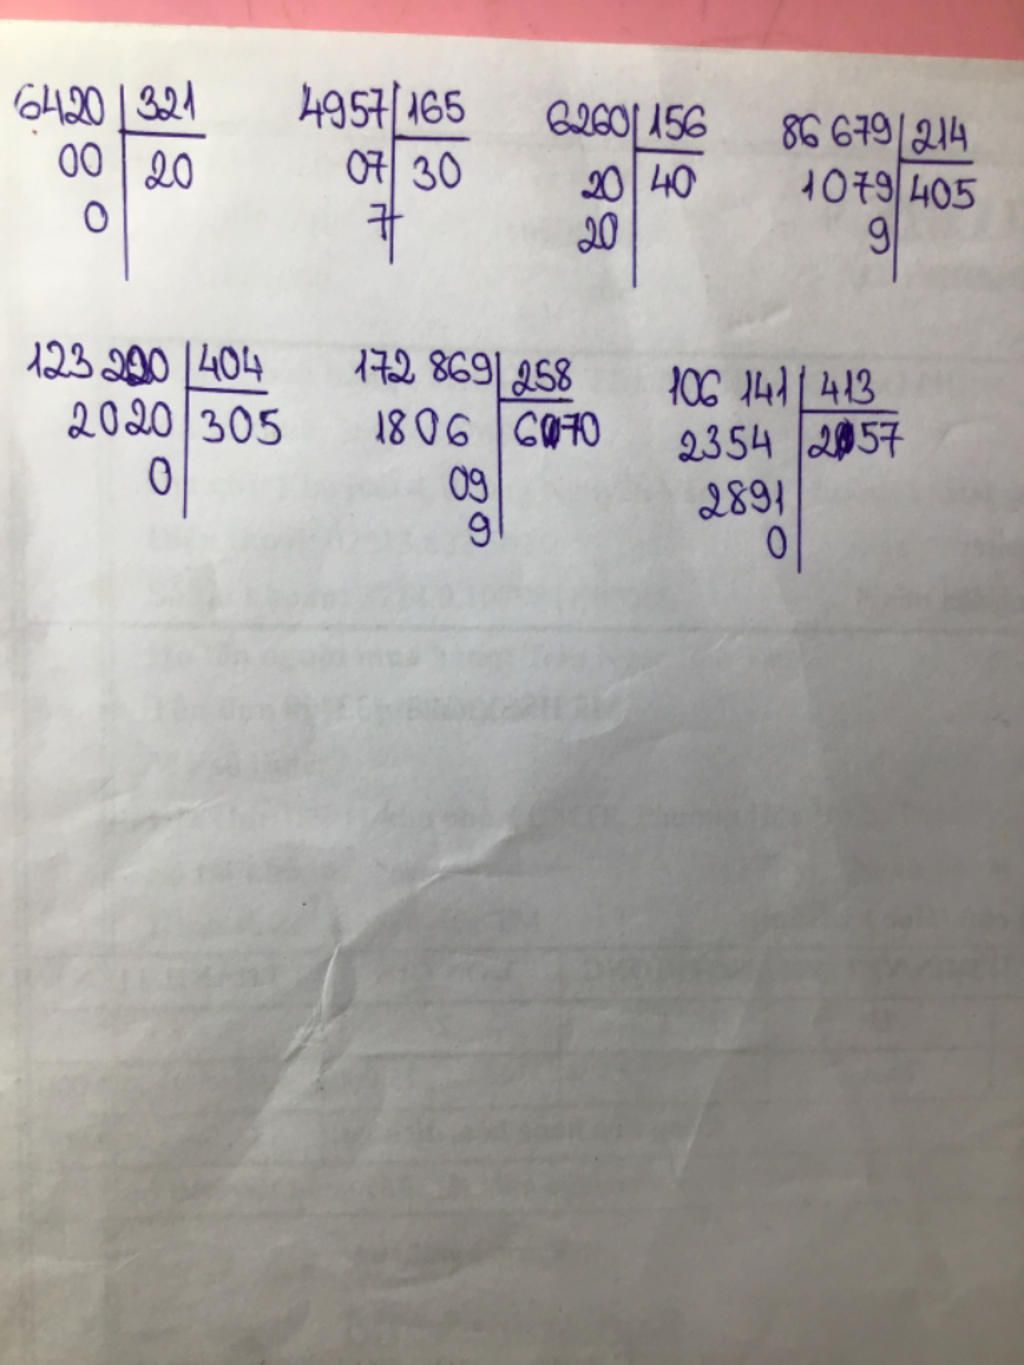 6420 321 4957 165 6260 156 86 679 214
00 20 07 30 20 40 1079 405
0 7 20 9
123 220 404 172 869 258 106 141 413
2020 305 1806 670 2354 257
0 09 2891
9 0